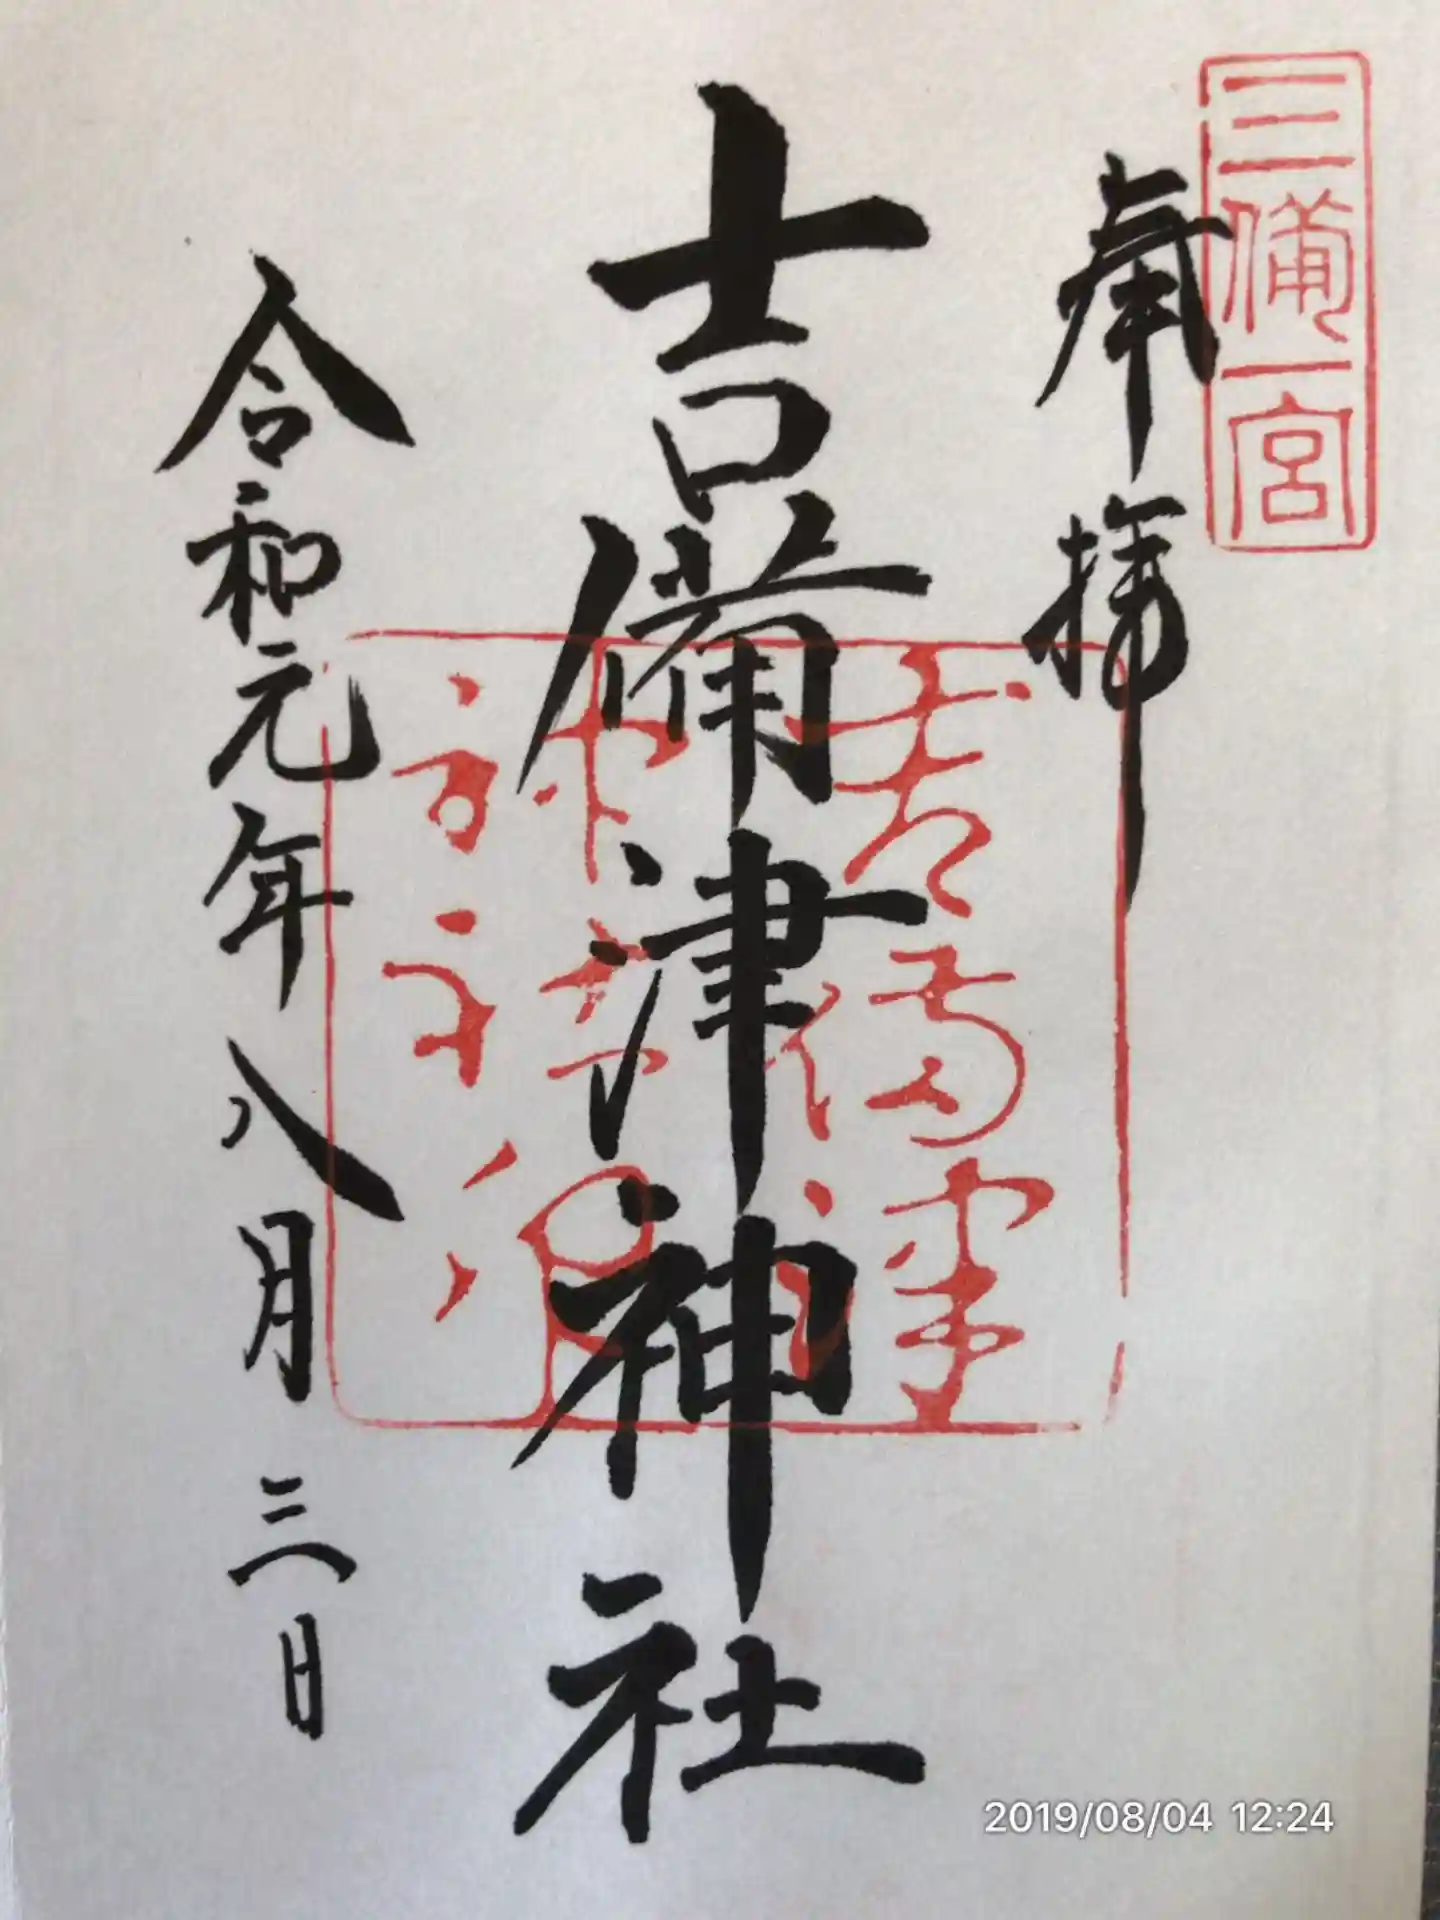 三備一宮
奉拝
吉備津神社
令和元年八月三日
2019/08/04 12:24